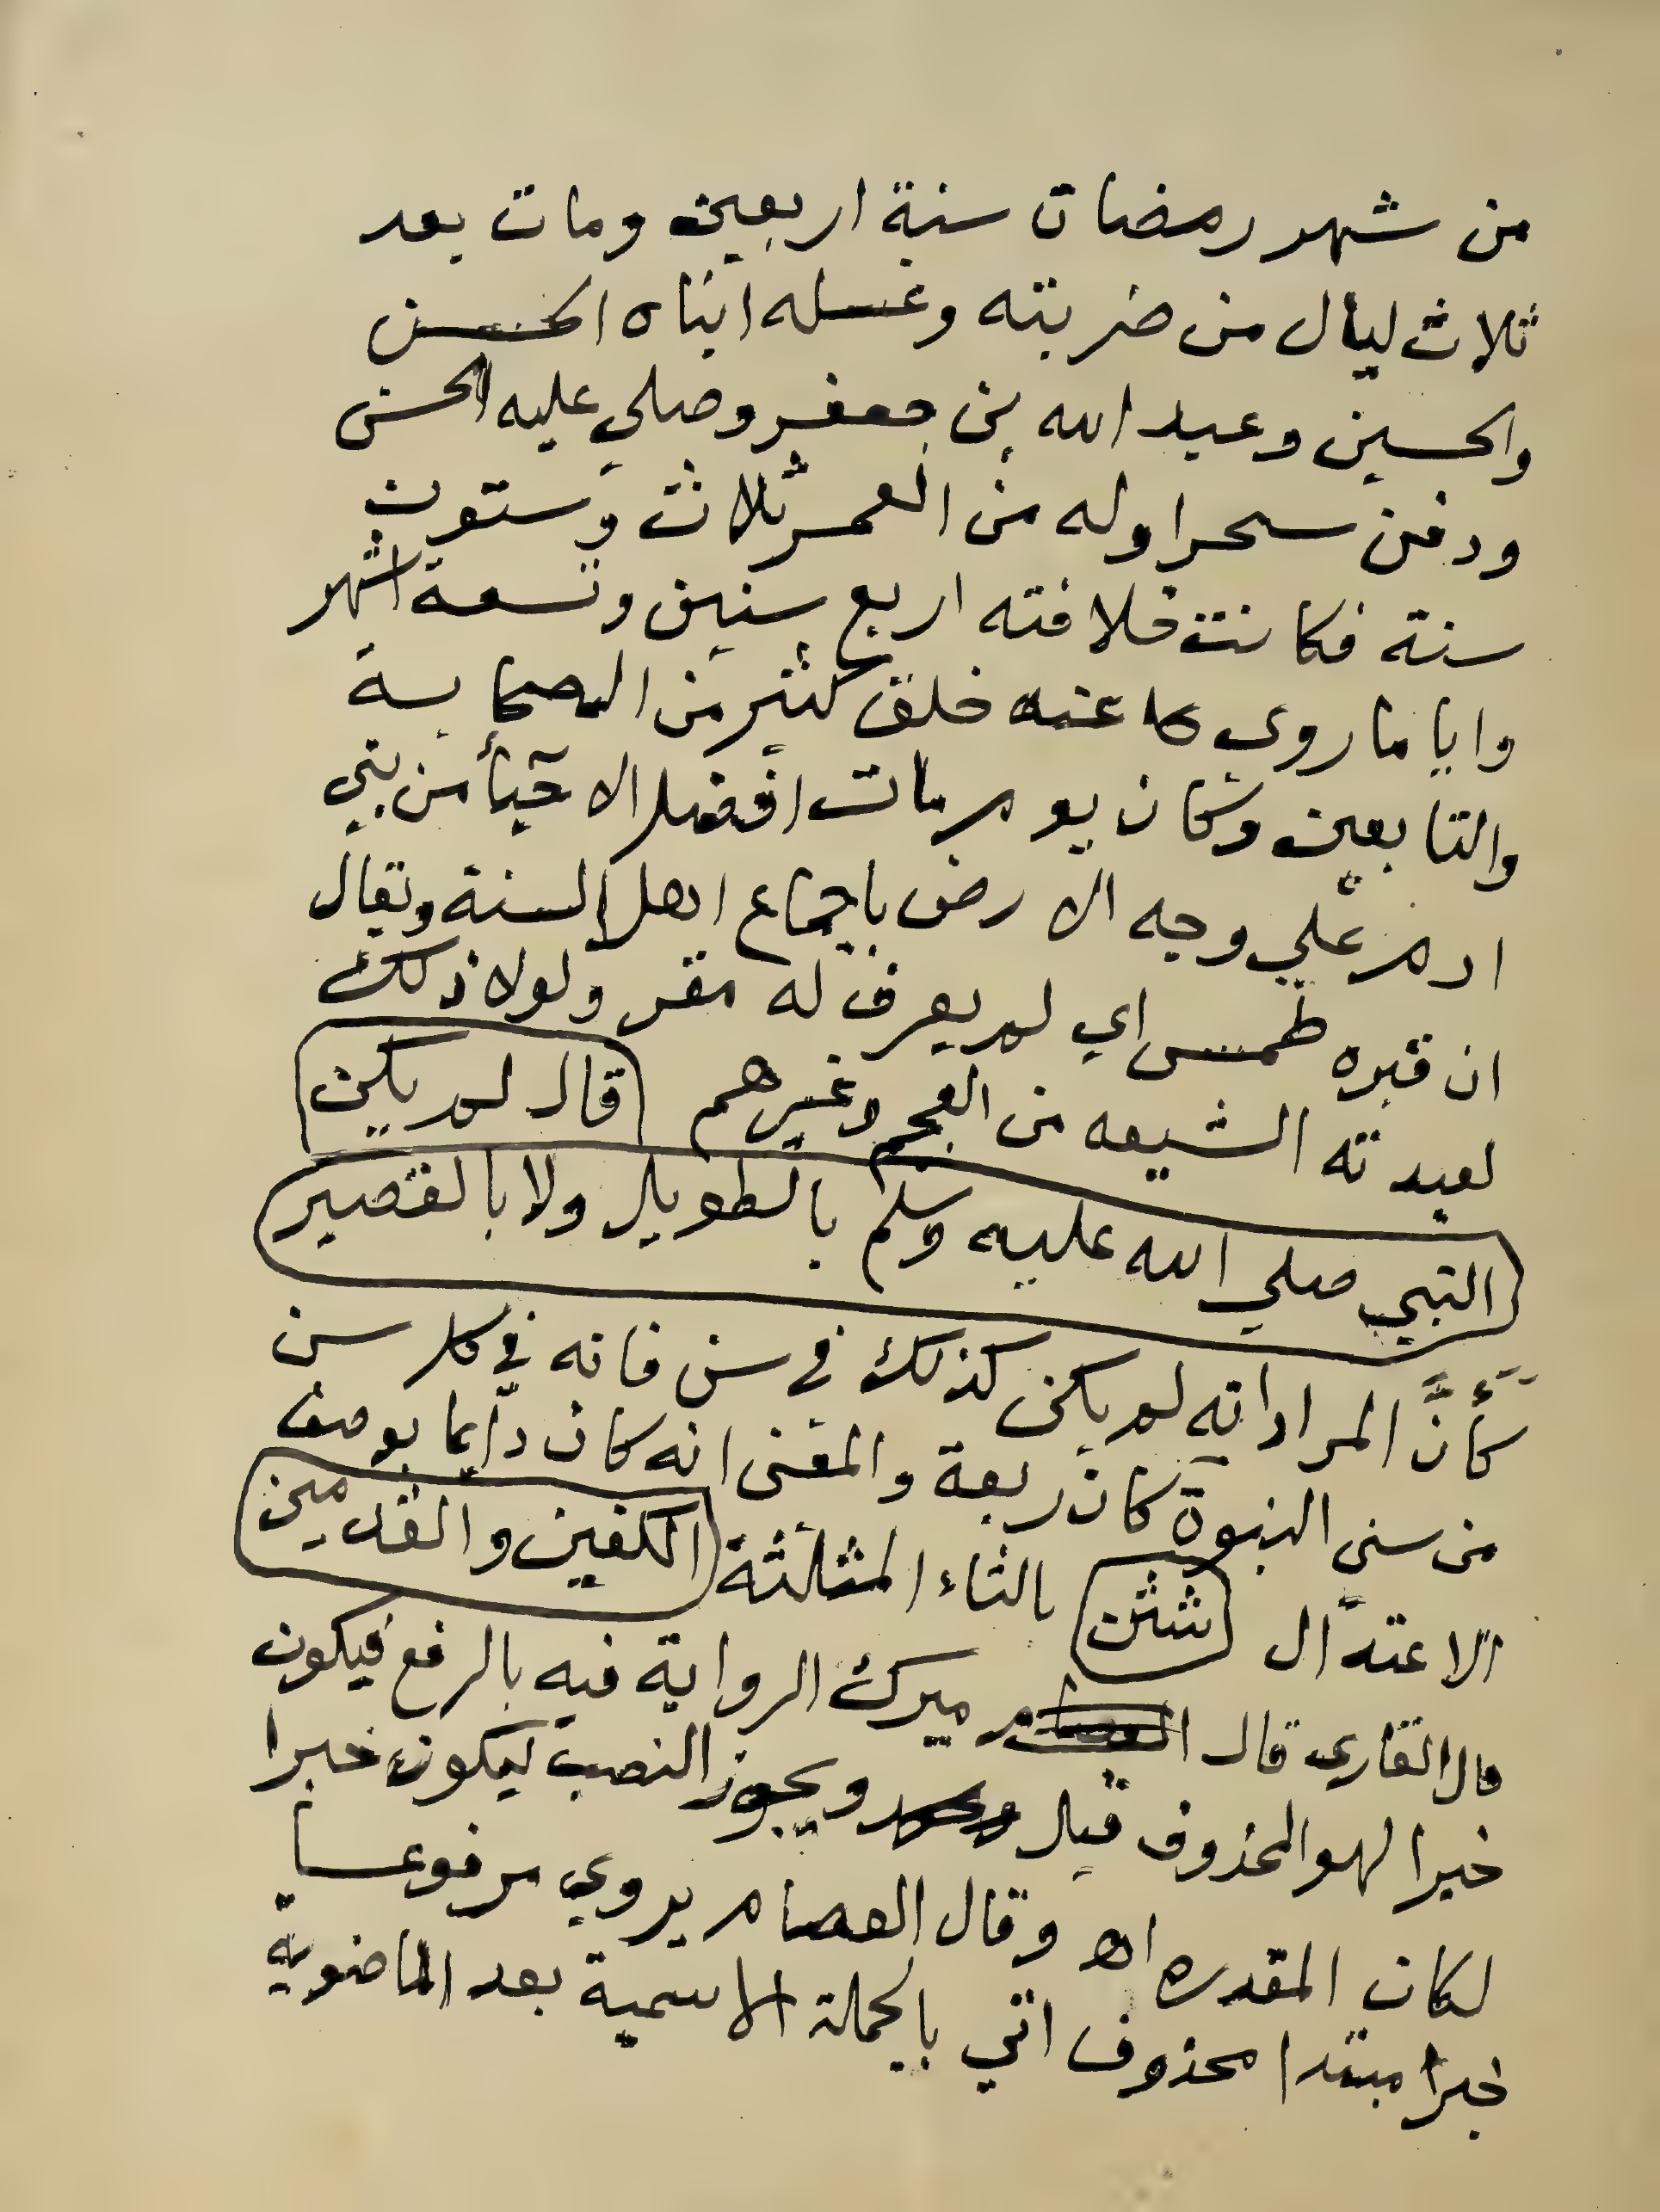 من شهر رمضان سنة اربعين ومات بعد
ثلاث ليال من ضربته وغسله ابناه الحسن
والحسين وعبد الله بن جعفر وصلي عليه الحسن
ودفن سحرا وله من العمر ثلاث وستون
سنة فكانت خلافته اربع سنين وتسعة اشهر
واياما روي عنه خلق كثير من الصحابة
والتابعين وكان يوم مات افضل الاحيأ من بني
ادم علي وجه الارض باجماع اهل السنة ويقال
ان قبره طمس اي لم يعرف له مقر ولولا ذلك
لعبدته الشيعه من العجم وغيرهم قال لم يكن
النبي صلي الله عليه وسلم بالطويل ولا بالقصير
كأنَّ المراد انه لم يكن كذلك في سن فانه في كل سن
من سني النبوة كان ربعة والمعني انه كان دآيما بوصف
الاعتدال شثن بالثاء المثلثة الكفين والقدمين
قال القاري قال ميرك الرواية فيه بالرفع فيكون
خبرا لهو المحذوف قيل ويجوز النصب ليكون خبرا
لكان المقدره اه وقال العصام يروي مرفوعا
خبرا مبتدا محذوف اتي بالجملة الاسمية بعد الماضوية